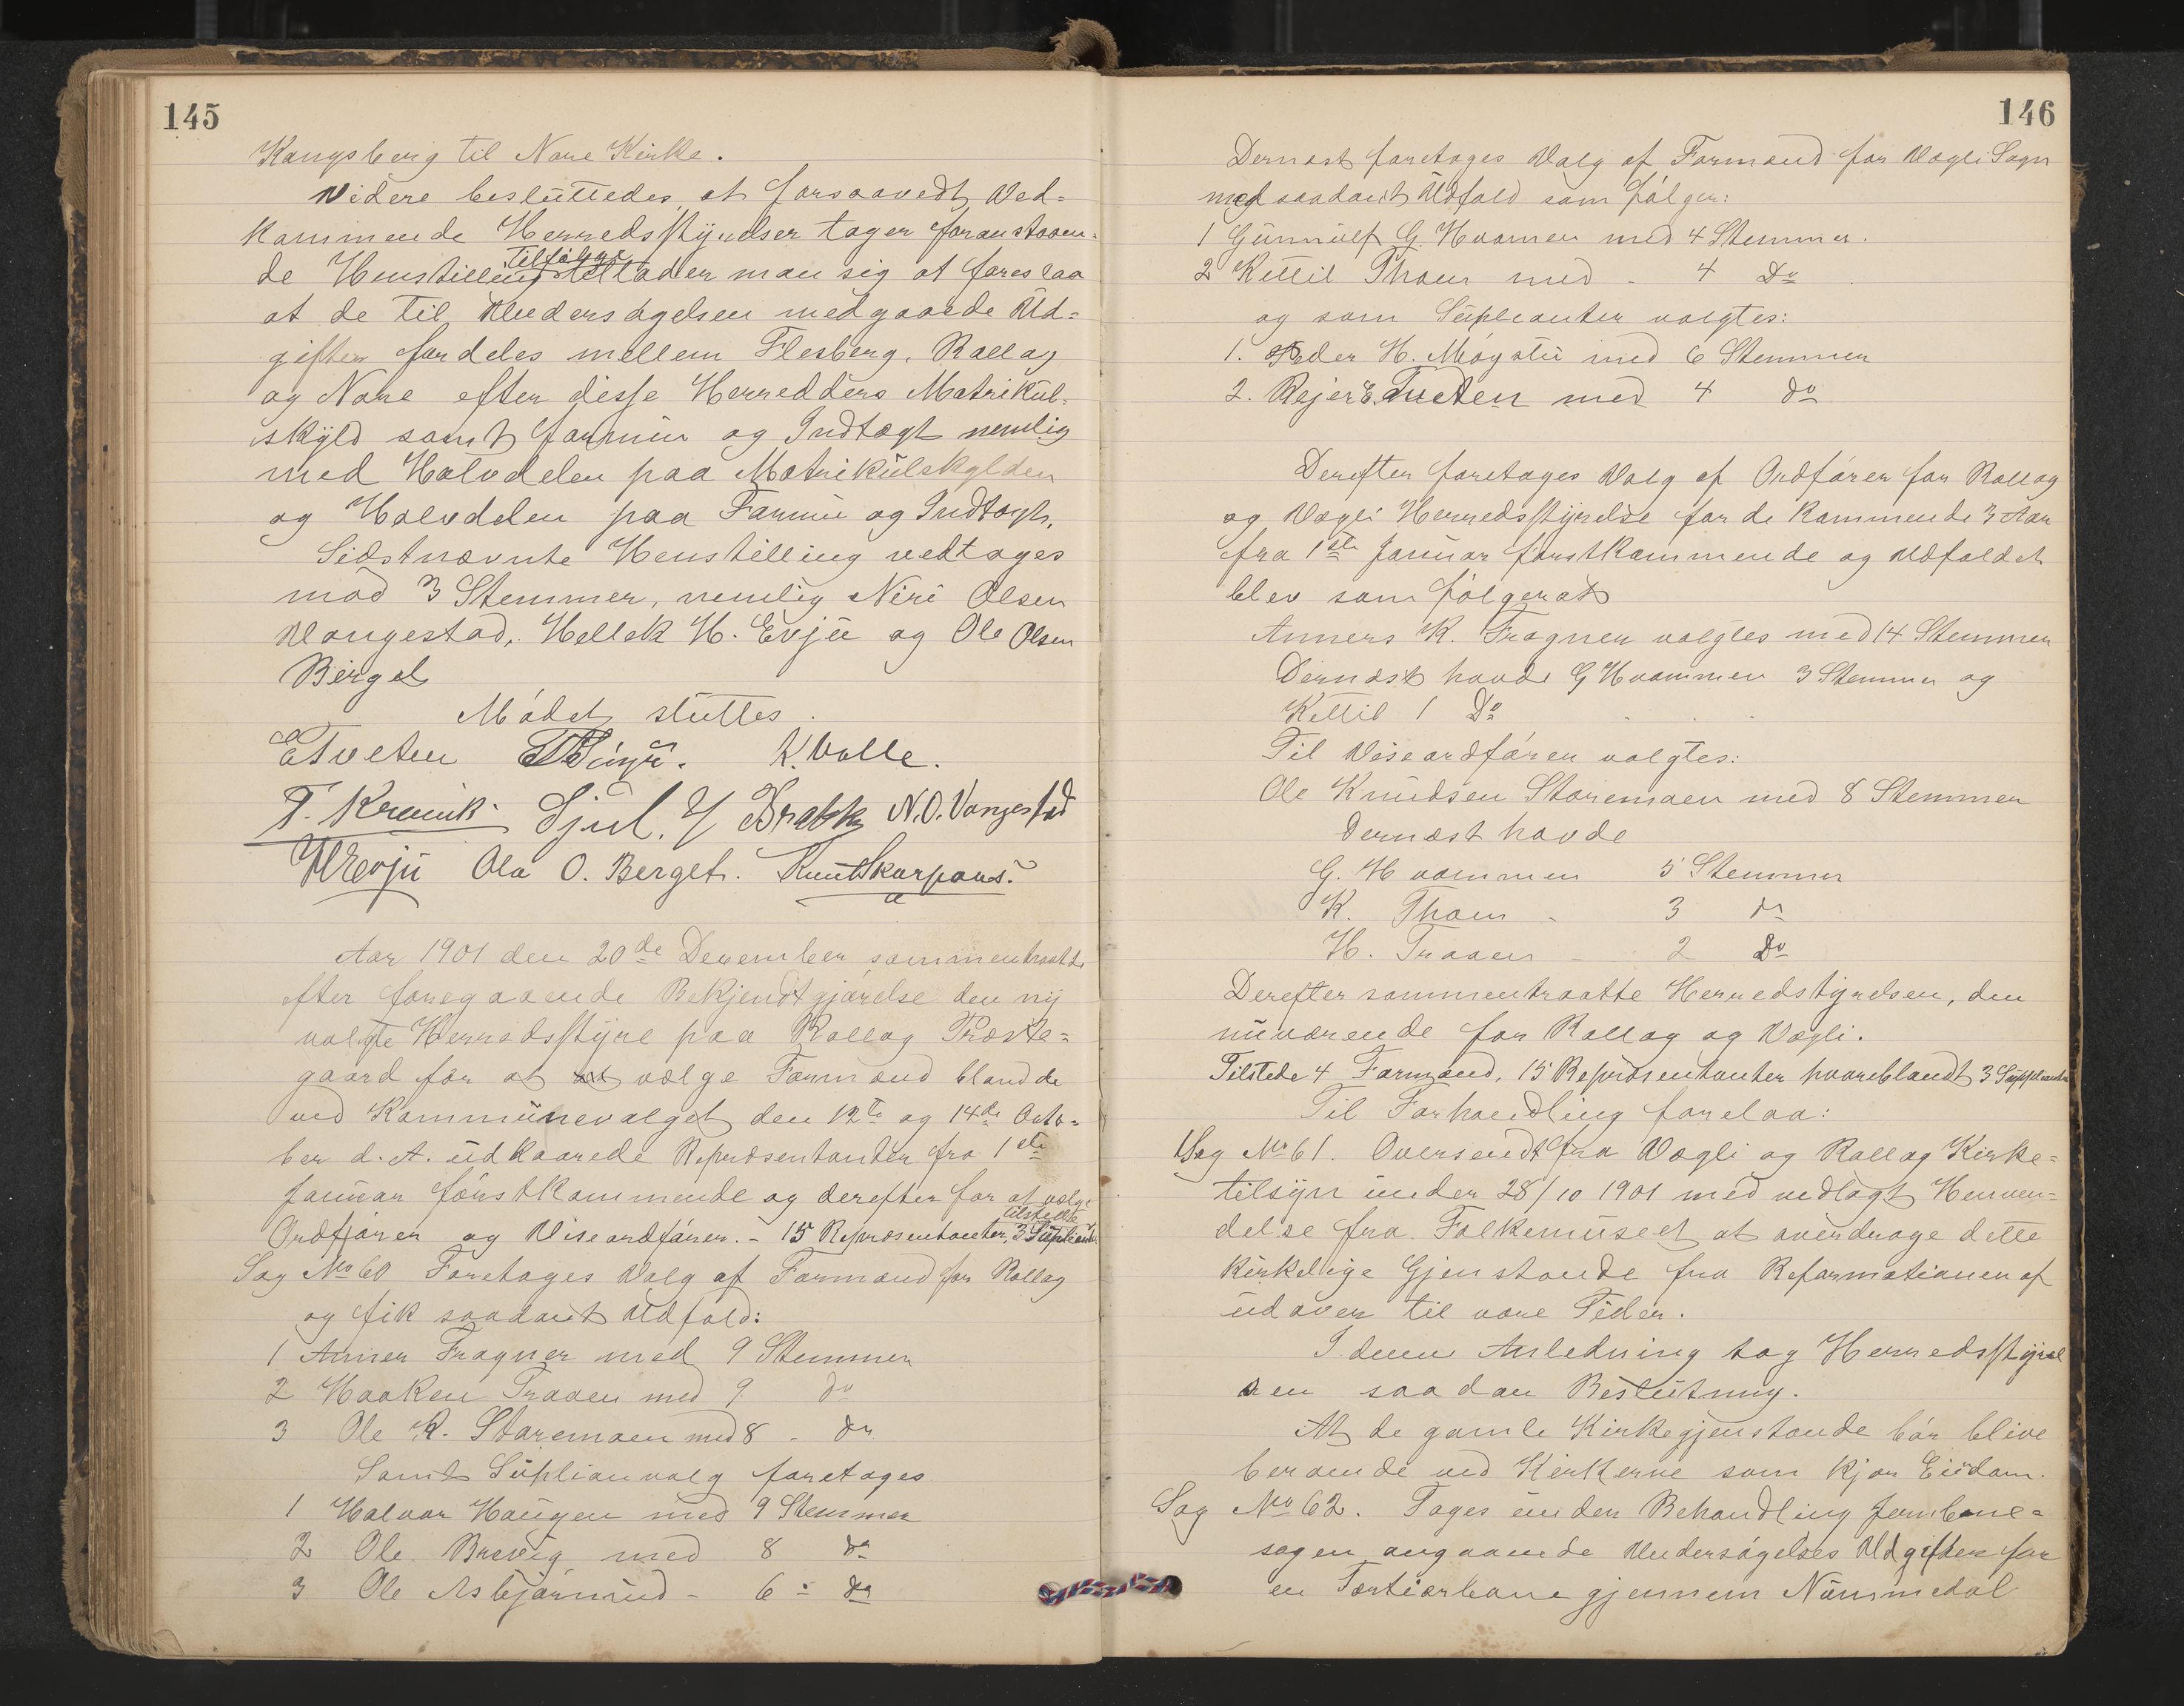 145
Kongsberg til Nore Kirke.
Videre besluttedes, at forsaavedt Ved-
kommende Herredsstyrelser tager foranstaaen-
de Henstilling tilfølge tillader man sig at foreslaa
at de til Undersøgelsen medgaaede Ud-
gifter fordeles mellem Flesberg, Rollag
og Nore efter disse Herredders Matrikul-
skyld samt formue og Indtægt nemlig
med Halvdelen paa Matrikulskylden
og Halvdelen paa Formue og Indtægt.
Sidstnævnte Henstilling vedtages
mod 3 Stemmer, nemlig Niri Olsen
Vangestad, Hellek H. Evju og Ole Olsen
Berget
Mødet sluttes.
E Tveten K. Valle.
T. Kravik. Gjul. Brekke N. O. Vangestad
H Evju Ola O. Berget. Knut Skarpaas.
Aar 1901 den 20de December sammentraadte
efter foregaaende Bekjendtgjørelse den ny
valgte Herredsstyre paa Rollag Præste-
gaard for at vælge Formænd bland de
ved Kommunevalget den 12te og 14de Octo-
ber d. A. udkaarede Repræsentanter fra 1ste
Januar førstkommende og derefter for at vælge
Ordfører og Viseordfører. - 15 Repræsentanter, 3 Supleant tilstede
Sag No 60 Foretages Valg af Formænd for Rollag
og fik saadant Udfald:
1 Anner Fragner med 9 Stemmer
2 Haaken Traaen med 9 do
3 Ole K. Storemoen med 8 - do
Samt Suplianvalg foretages
1 Halvor Haugen med 9 Stemmer
2 Ole Brevig med 8 do
3 Ole Asbjørnrud - 6 - do
146
Dernæst foretages Valg af Formænd for Vægli Sogn
med saadant Udfald som følger:
1 Gunnulf G. Hvamen med 4 Stemmer.
2 Kittil Thoen med - 4 Do
og som Supleanter valgtes:
1. Peder H. Møgstu med 6 Stemmer
2. Rejer E. Tveten med 4 do
Derefter foretages Valg af Ordfører for Rollag
og Vægli Herredsstyrelse for de kommende 3 Aar
fra 1ste Januar førstkommende og Udfaldet
blev som følger at
Anners K. Fragner valgtes med 14 Stemmer
Dernæst havde G Hvammen 3 Stemmer og
Kittil 1 Do
Til Viseordfører valgtes:
Ole Knudsen Storemoen med 8 Stemmer
Dernæst havde
G. Hvammen 5 Stemmer
K. Thoen - 3 do
H. Traaen - 2 Do
Derefter sammentraatte Herredstyrelsen, den
nuværende for Rollag og Vægli.
Tilstede 4 Formænd, 15 Repræsentanter hvoreblandt 3 Supplianter
Til Forhandling forelaa:
Sag No 61. Oversendt fra Vægli og Rollag Kirke-
tilsyn under 28/10 1901 med vedlagt Henven-
delse fra Folkemuseet at overdrage dette
Kirkelige Gjenstande fra Reformationen af
udover til vore Tider.
I denne Anledning tog Herredsstyrel
sen saadan Beslutning.
At de gamle Kirkegjenstande bør blive
beroende ved Kirkerne som kjør Eiedom.
Sag No 62. Tages under Behandling Jernbane-
sagen angaaende Undersøgelses Udgifter for
en Tertiærbane gjennem Nummedal